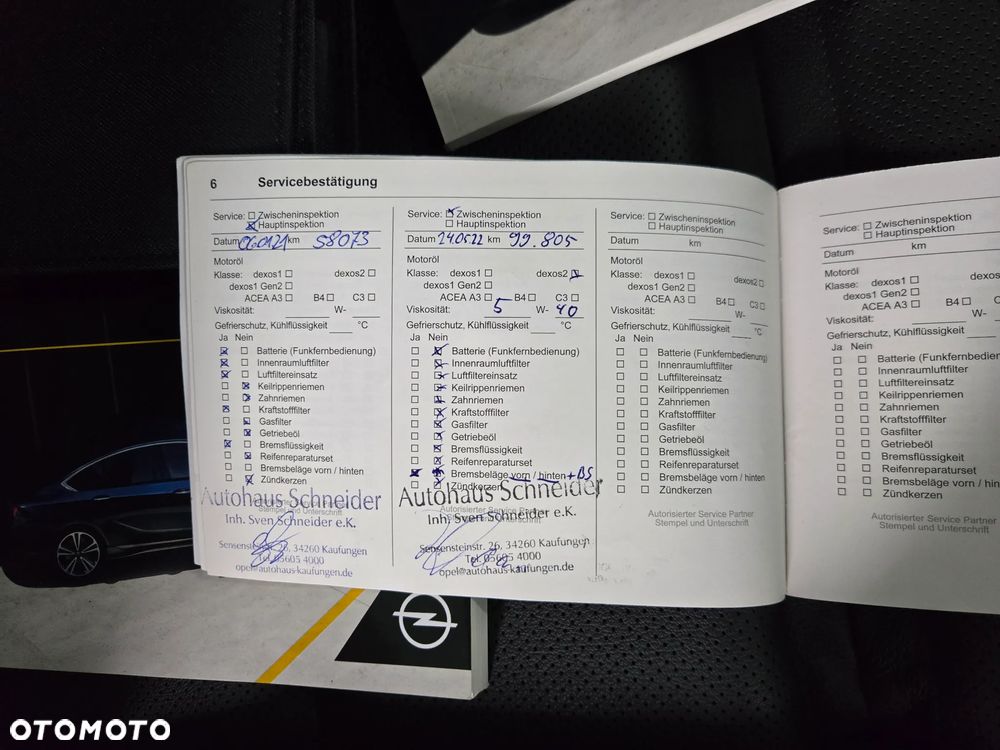 6 Servicebestätigung
Service: Zwischeninspektion
Hauptinspektion
Datum 06.01.21 km 58073
Motoröl
Klasse: dexos1 dexos2
dexos1 Gen2
ACEA A3 B4 C3
Viskosität: W-
Gefrierschutz, Kühlflüssigkeit °C
Ja Nein
Batterie (Funkfernbedienung)
Innenraumluftfilter
Luftfiltereinsatz
Keilrippenriemen
Zahnriemen
Kraftstofffilter
Gasfilter
Getriebeöl
Bremsflüssigkeit
Reifenreparaturset
Bremsbeläge vorn / hinten
Zündkerzen
Autohaus Schneider
Autorisierter Service Partner
Stempel und Unterschrift
Inh. Sven Schneider e.K.
Sensensteinstr. 26, 34260 Kaufungen
Tel. 05605 4000
opel@autohaus-kaufungen.de
Service: Zwischeninspektion
Hauptinspektion
Datum 24.05.22 km 99.805
Motoröl
Klasse: dexos1 dexos2
dexos1 Gen2
ACEA A3 B4 C3
Viskosität: 5 W- 40
Gefrierschutz, Kühlflüssigkeit °C
Ja Nein
Batterie (Funkfernbedienung)
Innenraumluftfilter
Luftfiltereinsatz
Keilrippenriemen
Zahnriemen
Kraftstofffilter
Gasfilter
Getriebeöl
Bremsflüssigkeit
Reifenreparaturset
Bremsbeläge vorn / hinten + BS
Zündkerzen
Autohaus Schneider
Inh. Sven Schneider e.K.
Sensensteinstr. 26, 34260 Kaufungen
Tel. 05605 4000
opel@autohaus-kaufungen.de
Service: Zwischeninspektion
Hauptinspektion
Datum km
Motoröl
Klasse: dexos1 dexos2
dexos1 Gen2
ACEA A3 B4 C3
Viskosität: W-
Gefrierschutz, Kühlflüssigkeit °C
Ja Nein
Batterie (Funkfernbedienung)
Innenraumluftfilter
Luftfiltereinsatz
Keilrippenriemen
Zahnriemen
Kraftstofffilter
Gasfilter
Getriebeöl
Bremsflüssigkeit
Reifenreparaturset
Bremsbeläge vorn / hinten
Zündkerzen
Autorisierter Service Partner
Stempel und Unterschrift
Service: Zwischeninspektion
Hauptinspektion
Datum km
Motoröl
Klasse: dexos1 dexos
dexos1 Gen2
ACEA A3 B4
Viskosität: W-
Gefrierschutz, Kühlflüssigkeit
Ja Nein
Batterie (Funkfernbedien
Innenraumluftfilter
Luftfiltereinsatz
Keilrippenriemen
Zahnriemen
Kraftstofffilter
Gasfilter
Getriebeöl
Bremsflüssigkeit
Reifenreparaturset
Bremsbeläge vorn / hinten
Zündkerzen
Autorisierter Service Partner
Stempel und Unterschrift
OTOMOTO